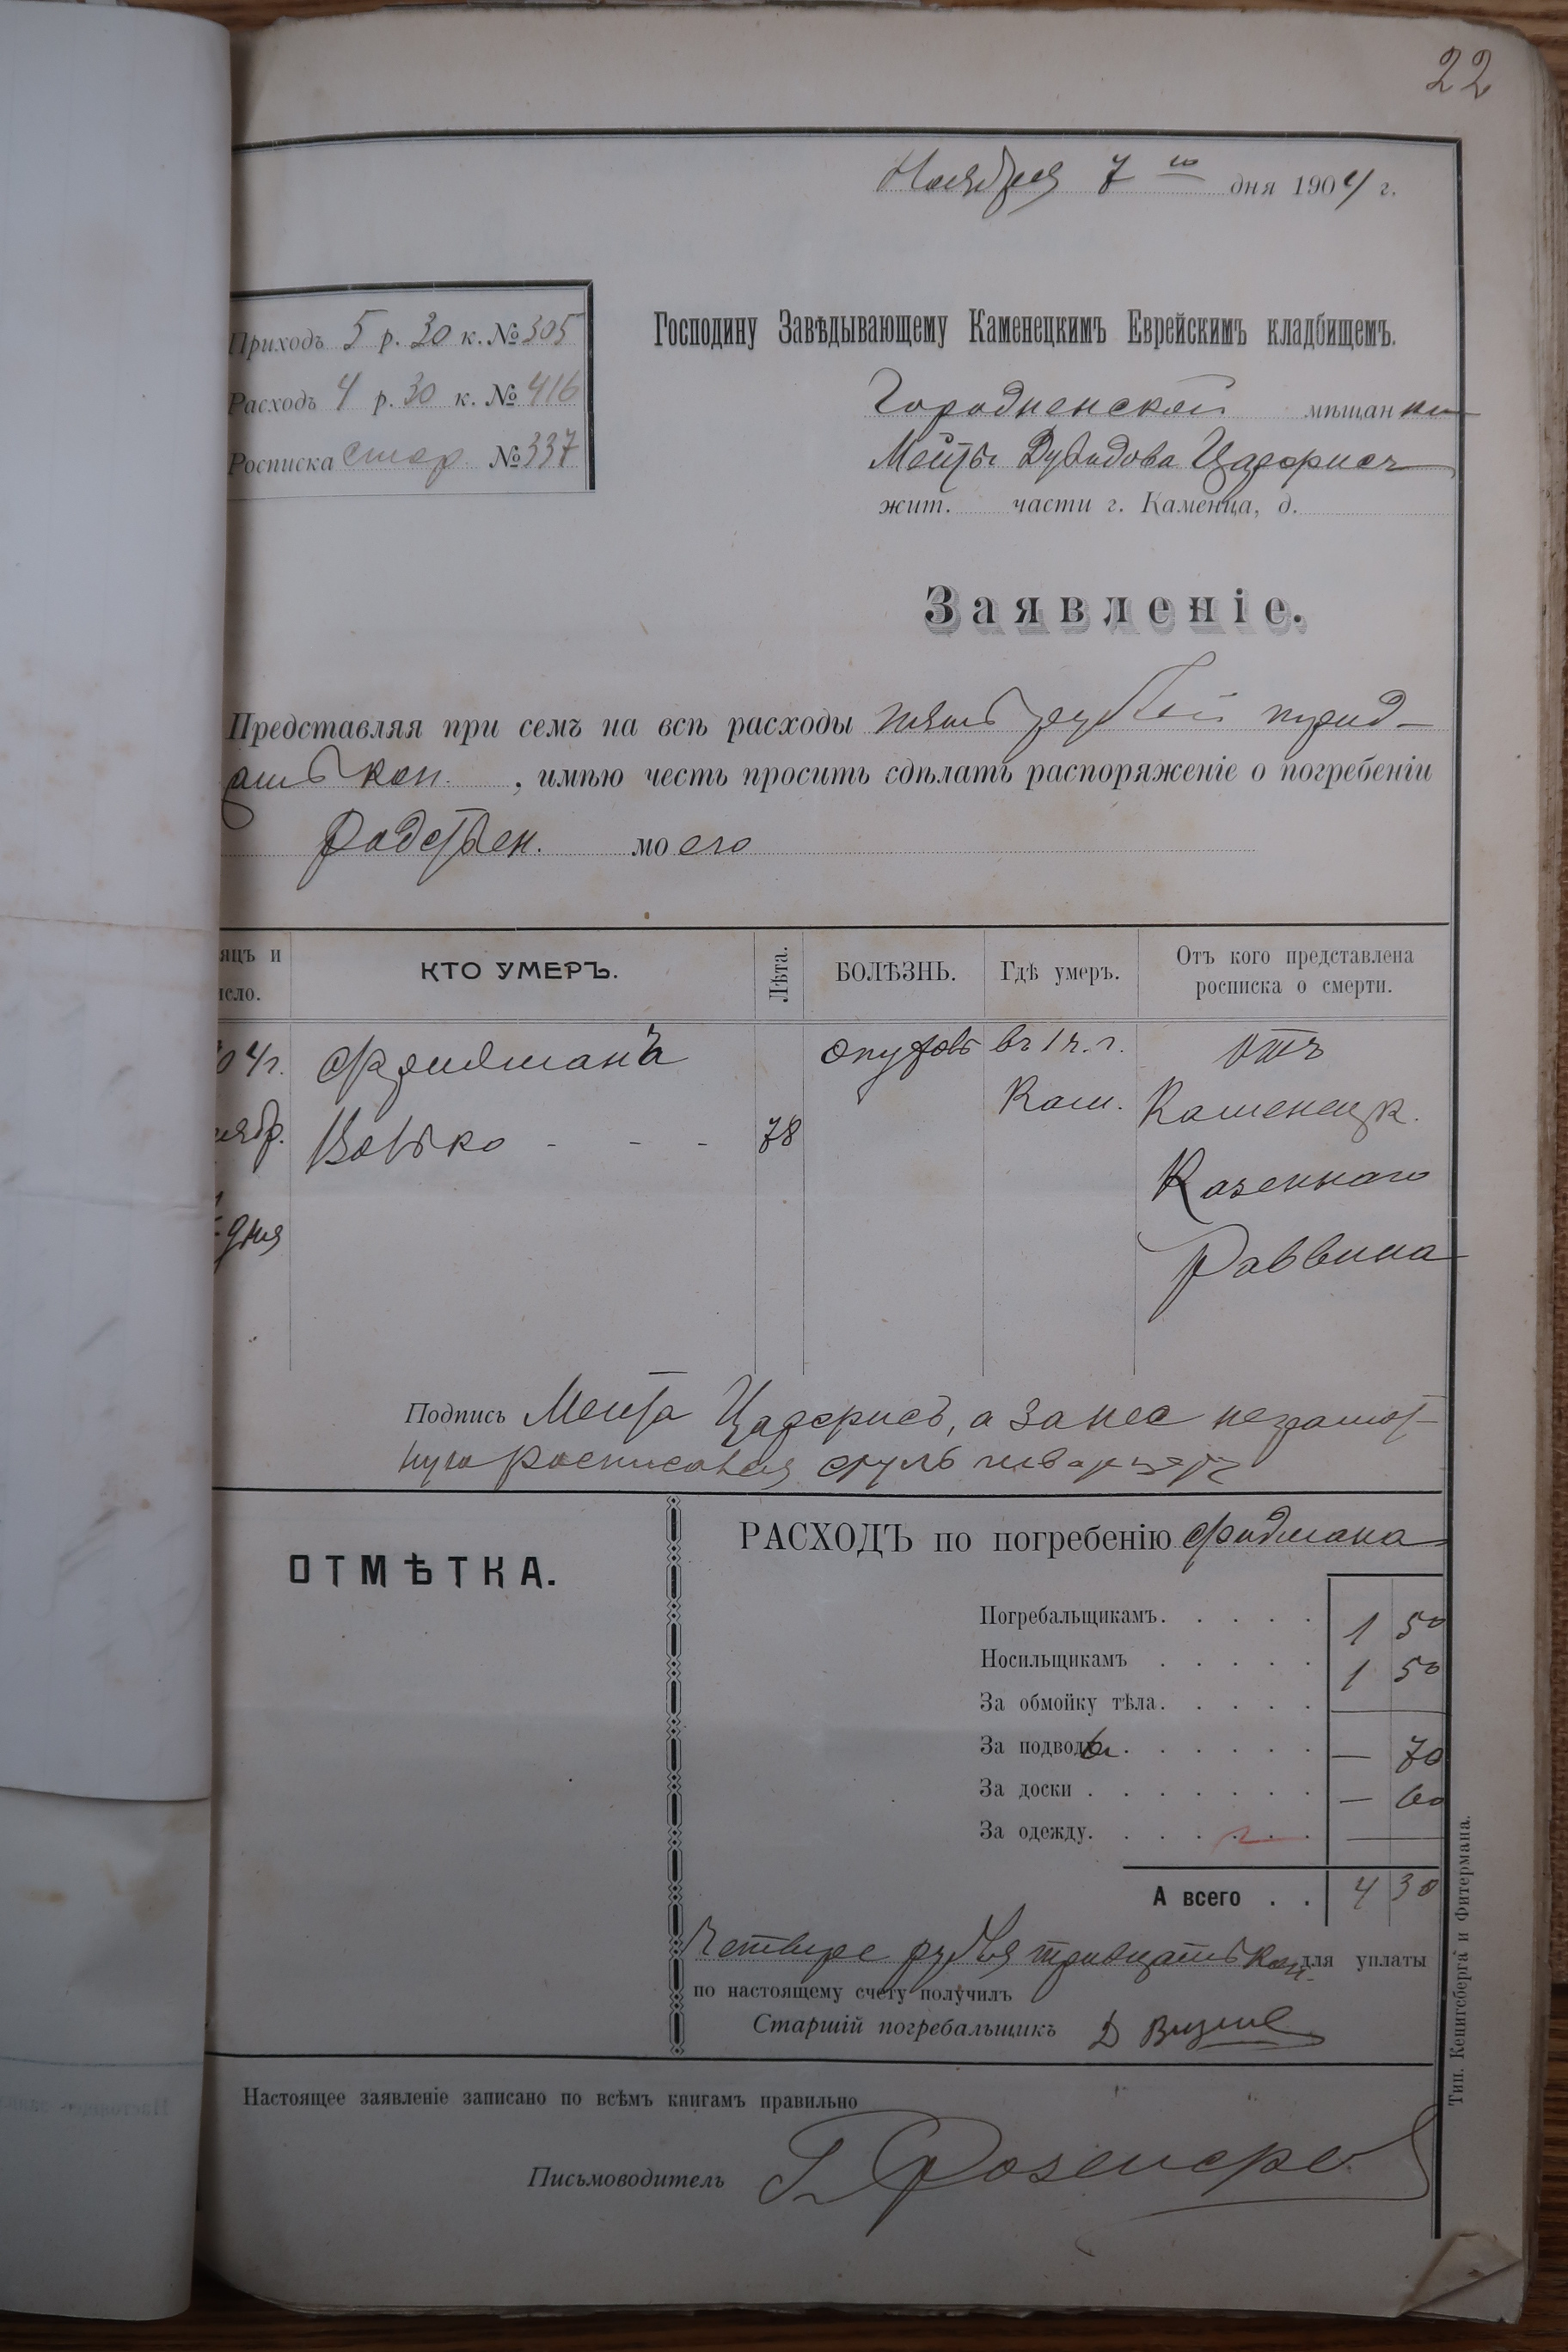 22
Ноября 7 го дня 1904 г.
Приходъ 5 р. 30 к. № 305
Расходъ 4 р. 30 к. № 416
Росписка стар №337
Господину Завѣдывающему Каменецкимъ Еврейскимъ кладбищемъ.
Городненской мѣщанки
Дувидова
жит. части г. Каменца, д.
Заявленіе.
Представляя при семъ на всѣ расходы пять рублей трид-
цать коп. , имѣю честь просить сдѣлать распоряженіе о погребеніи
родствен. моего
яцъ и
исло.
КТО УМЕРЪ.
Лѣта.
БОЛѢЗНЬ.
Гдѣ умеръ.
Отъ кого представлена
росписка о смерти.
04г. опухоль въ 1 ч. г. отъ
Кам. Каменецк.
ябр. 78
Казеннаго
дня
Раввина
Подпись а за нее неграмот-
ную росписался
ОТМѢТКА.
РАСХОДЪ по погребенію Фидмана
Погребальщикамъ. . . . . 1 50
Носильщикамъ . . . . . 1 50
За обмойку тѣла. . . . .
За подводы . . . . . . — 70
За доски . . . . . . . — 60
За одежду. . . . . . —
А всего . . 4 30
Четыре рубля тридцать коп. для уплаты
по настоящему счету получилъ
Старшій погребальщикъ Д
Настоящее заявленіе записано по всѣмъ книгамъ правильно
Письмоводитель
Тип. Кенигсберга и Фитермана.